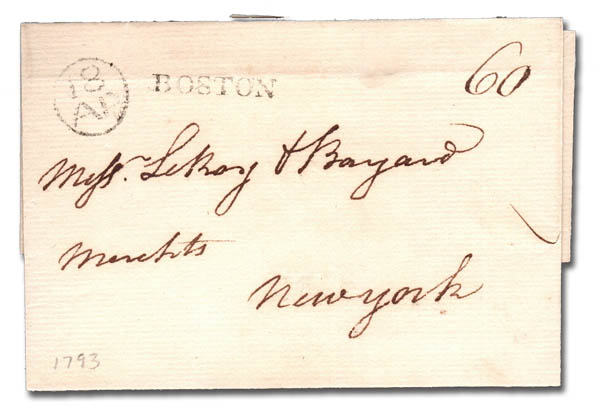 BOSTON
60
Messrs. LeRoy & Bayard
Merchts
New york
1793